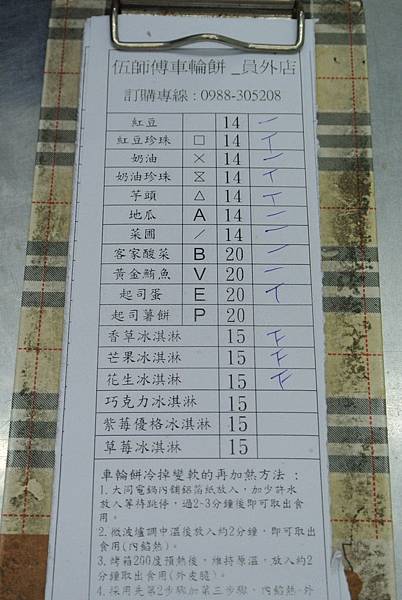 伍師傅車輪餅_員外店
訂購專線:0988-305208
紅豆 14 一
紅豆珍珠 □ 14 丅
奶油 × 14 一
奶油珍珠 14 丅
芋頭 △ 14 丅
地瓜 A 14 一
菜圃 / 14 一
客家酸菜 B 20 一
黃金鮪魚 V 20 一
起司蛋 E 20 丅
起司薯餅 P 20
香草冰淇淋 15 下
芒果冰淇淋 15 下
花生冰淇淋 15 下
巧克力冰淇淋 15
紫莓優格冰淇淋 15
草莓冰淇淋 15
車輪餅冷掉變軟的再加熱方法:
1. 大同電鍋內鋪鋁箔紙放入,加少許水
放入等待跳停,過2~3分鐘後即可取出食
用。
2. 微波爐調中溫後放入約2分鐘,即可取出
食用(內餡熱)。
3. 烤箱200度預熱後,維持原溫,放入約2
分鐘取出食用(外皮脆)。
4. 採用先第2步驟加第三步驟,內餡熱,外